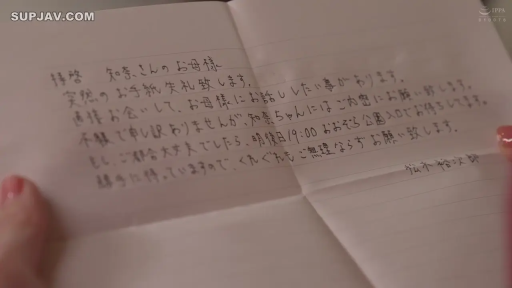 SUPJAV.COM
拝啓 知奈さんのお母様
突然のお手紙失礼致します。
直接お会いして、お母様にお話ししたい事があります。
不躾で申し訳ありませんが、知奈ちゃんにはご内密にお願い致します。
もし、ご都合大丈夫でしたら、明後日19:00 おおぞら公園入口でお待ちしてます。
勝手に待っていますので、くれぐれもご無理ならさずお願い致します。